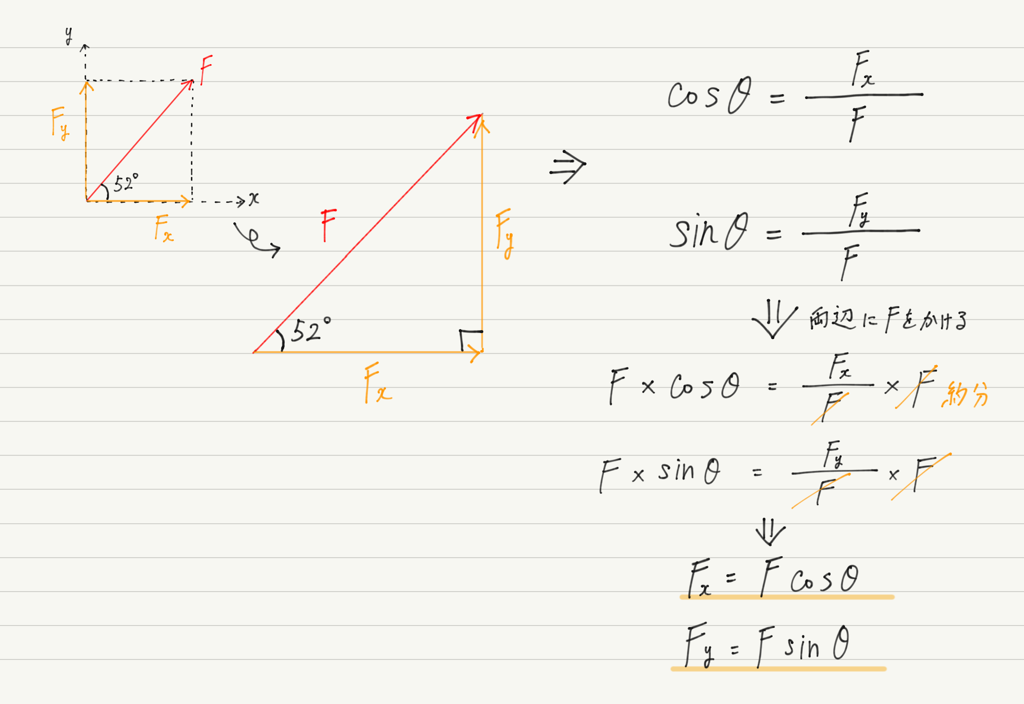 y
F
F_y
52°
x
F_x
F
F_y
52°
F_x
⇒
cosθ = F_x / F
sinθ = F_y / F
⇓ 両辺にFをかける
F × cosθ = F_x / F × F 約分
F × sinθ = F_y / F × F
⇓
F_x = F cosθ
F_y = F sinθ